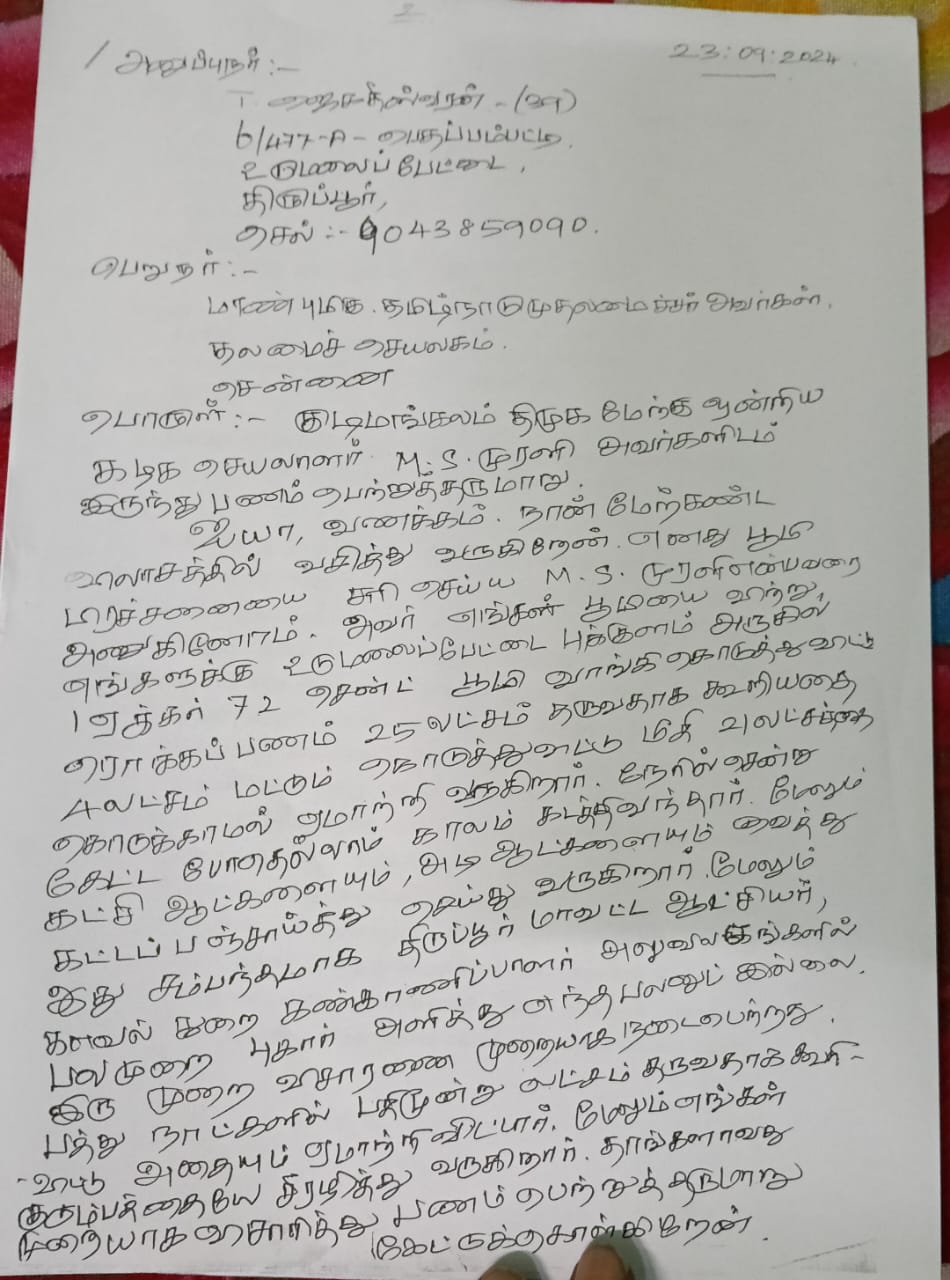 2
அனுப்புநர்:-
23:09:2024
T. (39)
6/477-A- பெதப்பம்பட்டி.
உடுமலைப்பேட்டை,
திருப்பூர்,
செல் :- 9043859090.
பெறுநர் :-
மாண்புமிகு. தமிழ்நாடு முதலமைச்சர் அவர்கள்.
தலமைச் செயலகம்.
சென்னை
பொருள் :- குடிமங்கலம் திமுக மேற்கு ஒன்றிய
கழக செயலாளர் M.S. முரளி அவர்களிடம்
இருந்து பணம் பெற்றுத்தருமாறு.
ஐயா, வணக்கம். நான் மேற்கண்ட
விலாசத்தில் வசித்து வருகிறேன். எனது பூமி
பிரச்சனையை சரி செய்ய M.S. முரளி என்பவரை
அணுகினோம். அவர் எங்கள் பூமியை விற்று,
எங்களுக்கு உடுமலைப்பேட்டை புக்குளம் அருகில்
1 ஏக்கர் 72 சென்ட் பூமி வாங்கி கொடுத்து விட்டு
ரொக்கப் பணம் 25 லட்சம் தருவதாக கூறியதை
4 லட்சம் மட்டும் கொடுத்து விட்டு மீதி 21 லட்சத்தை
கொடுக்காமல் ஏமாற்றி வருகிறார். நேரில் சென்று
கேட்ட போதெல்லாம் காலம் கடத்தி வந்தார். மேலும்
கட்சி ஆட்களையும், அடி ஆட்களையும் வைத்து
கட்டப் பஞ்சாய்த்து செய்து வருகிறார். மேலும்
இது சம்பந்தமாக திருப்பூர் மாவட்ட ஆட்சியர்,
காவல் துறை கண்காணிப்பாளர் அலுவலகங்களில்
பலமுறை புகார் அளித்து எந்த பலனும் இல்லை.
இரு முறை விசாரணை முறையாக நடைபெற்றது.
பத்து நாட்களில் பதிமூன்று லட்சம் தருவதாக கூறி-
-விட்டு அதையும் ஏமாற்றி விட்டார். மேலும் எங்கள்
குடும்பத்தையே சீரழித்து வருகிறார். தாங்களாவது
முறையாக விசாரித்து பணம் பெற்றுத் தருமாறு
கேட்டுக்கொள்கிறேன்.